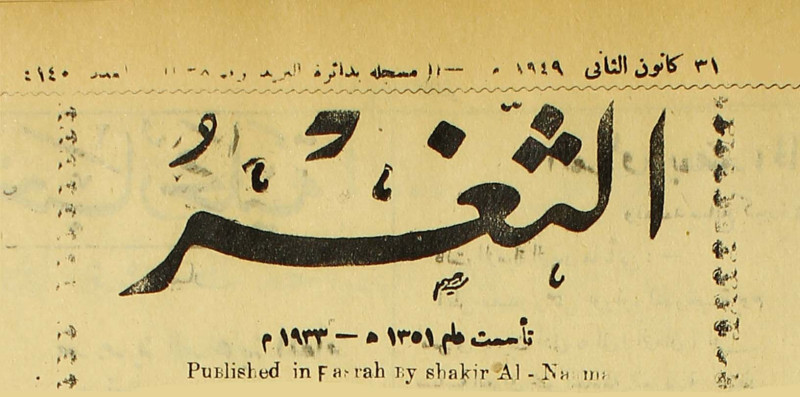 ٣١ كانون الثاني ١٩٤٩ م — مسجلة بدائرة البريد العدد ٤١٤٠
الثَّغْرُ
تأسست عام ١٣٥١ ه — ١٩٣٣ م
Published in Basrah By shakir Al-